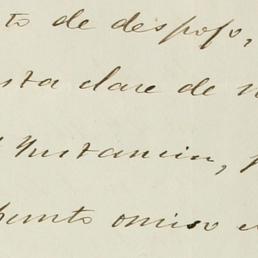 to de despojo,
sta clase de
Instancia,
omiso